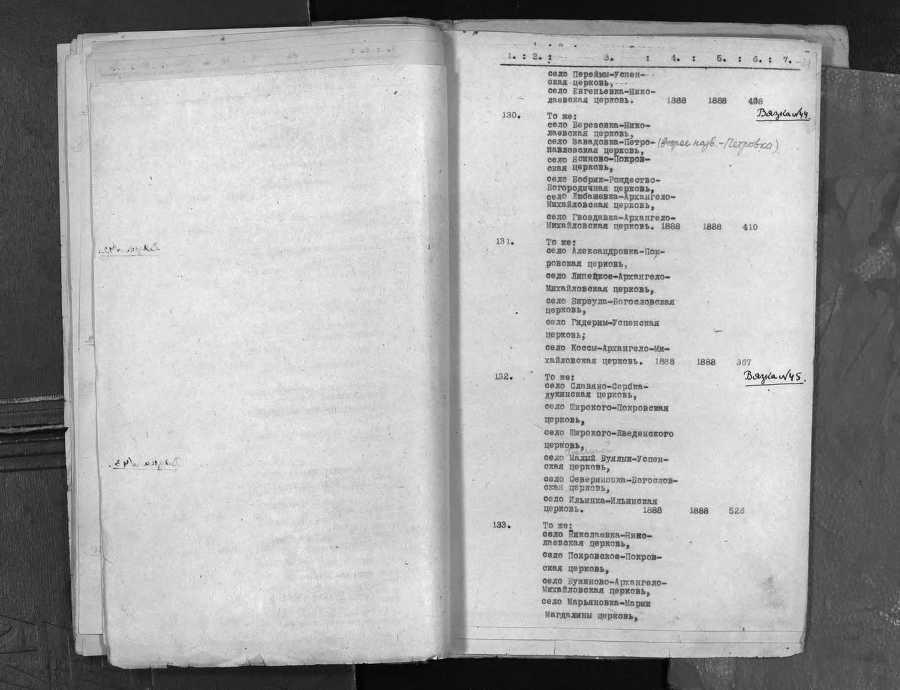 1. : 2. : 3. : 4. : 5. : 6. : 7.
село Перейма-Успен-
ская церковь,
село Евгеньевка-Нико-
лаевская церковь. 1888 1888 438
Вязка №44.
130. То же:
село Березовка-Нико-
лаевская церковь,
село Завадовка-Петро- (второе назв. - Петровка)
павловская церковь,
село Ясиново-Покров-
ская церковь,
село Бобрик-Рождество-
Богородичная церковь,
село Любашевка-Архангело-
Михайловская церковь,
село Гвоздавка-Архангело-
Михайловская церковь. 1888 1888 410
131. То же:
село Александровка-Пок-
ровская церковь,
село Липецкое-Архангело-
Михайловская церковь,
село Бирзула-Богословская
церковь,
село Гидерим-Успенская
церковь;
село Коссы-Архангело-Ми-
хайловская церковь. 1888 1888 367
132. То же: Вязка №45.
село Славяно-Сербка-
лукинская церковь,
село Широкого-Покровская
церковь,
село Широкого-Введенского
церковь,
село Малый Буялык-Успен-
ская церковь,
село Севериновка-Богослов-
ская церковь,
село Ильинка-Ильинская
церковь. 1888 1888 526
133. То же:
село Николаевка-Нико-
лаевская церковь,
село Покровское-Покров-
ская церковь,
село Куяниково-Архангело-
Михайловская церковь,
село Марьяновка-Марии
Магдалины церковь,